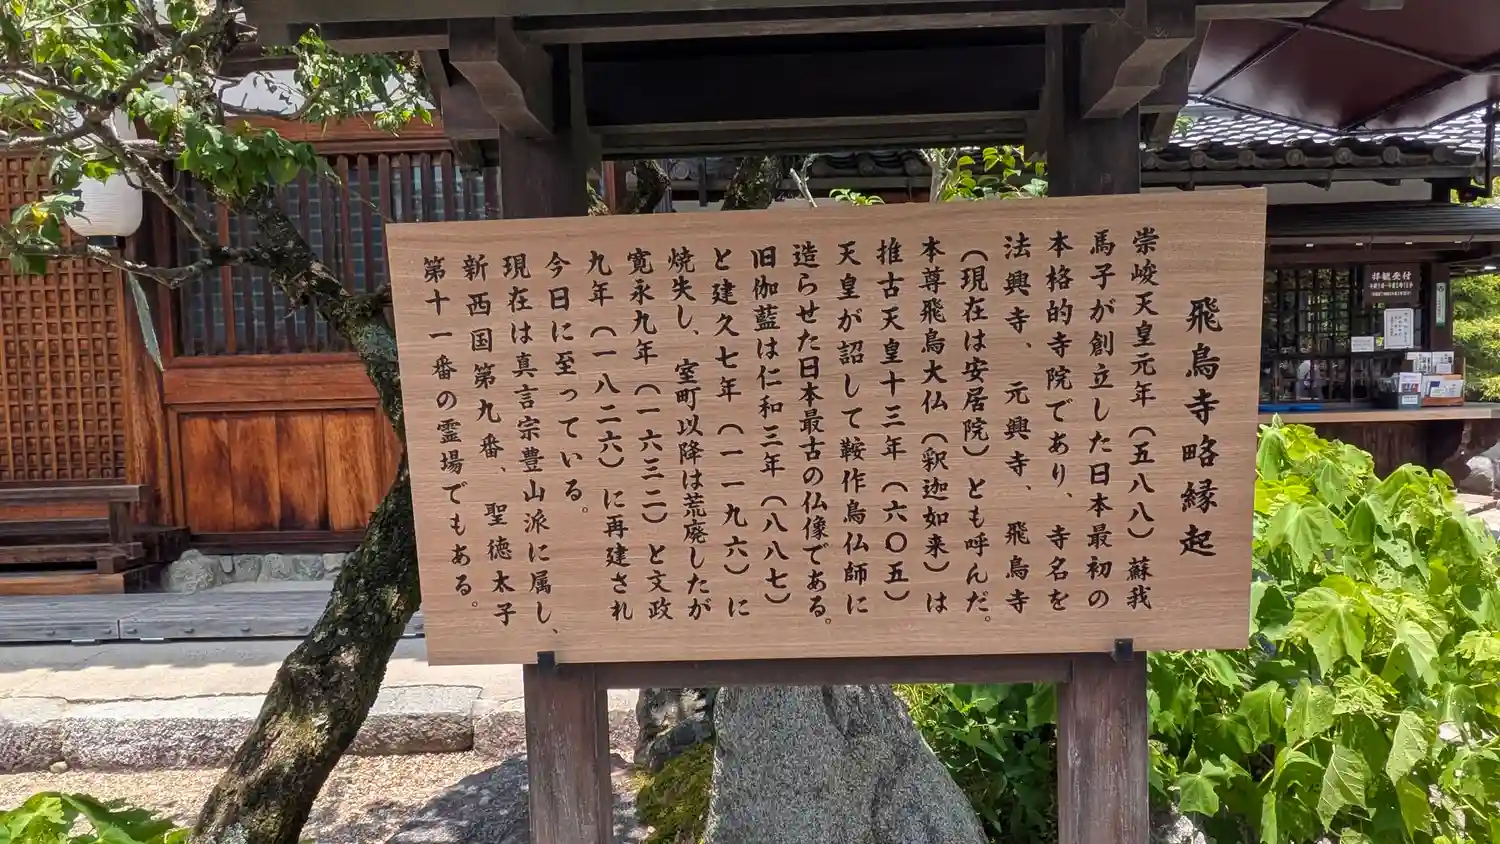 飛鳥寺略縁起
崇峻天皇元年（五八八）蘇我
馬子が創立した日本最初の
本格的寺院であり、寺名を
法興寺、元興寺、飛鳥寺
（現在は安居院）とも呼んだ。
本尊飛鳥大仏（釈迦如来）は
推古天皇十三年（六〇五）
天皇が詔して鞍作鳥仏師に
造らせた日本最古の仏像である。
旧伽藍は仁和三年（八八七）
と建久七年（一一九六）に
焼失し、室町以降は荒廃したが
寛永九年（一六三二）と文政
九年（一八二六）に再建され
今日に至っている。
現在は真言宗豊山派に属し、
新西国第九番、聖徳太子
第十一番の霊場でもある。
拝観受付